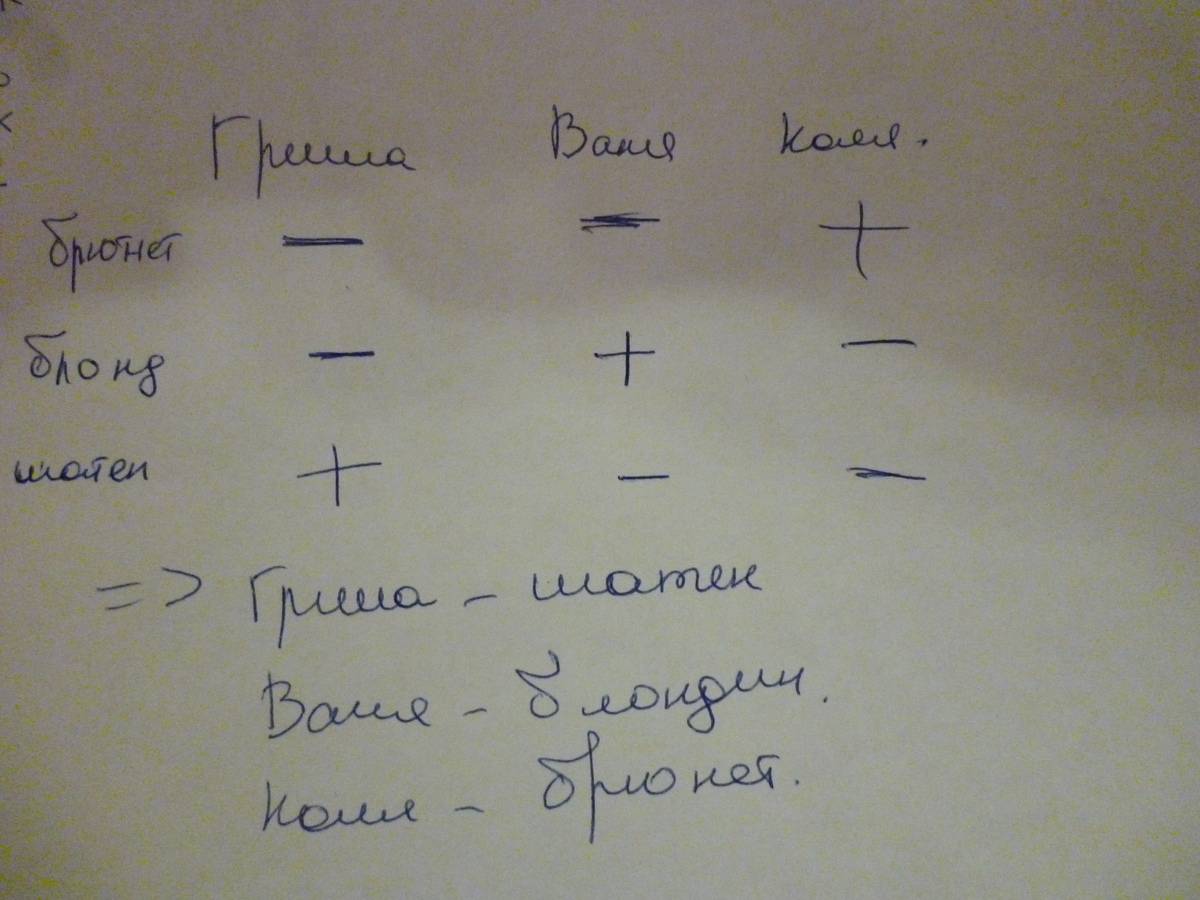 Гриша Ваня Коля.
брюнет — = +
блонд — + —
шатен + — —
=> Гриша - шатен
Ваня - блондин.
Коля - брюнет.